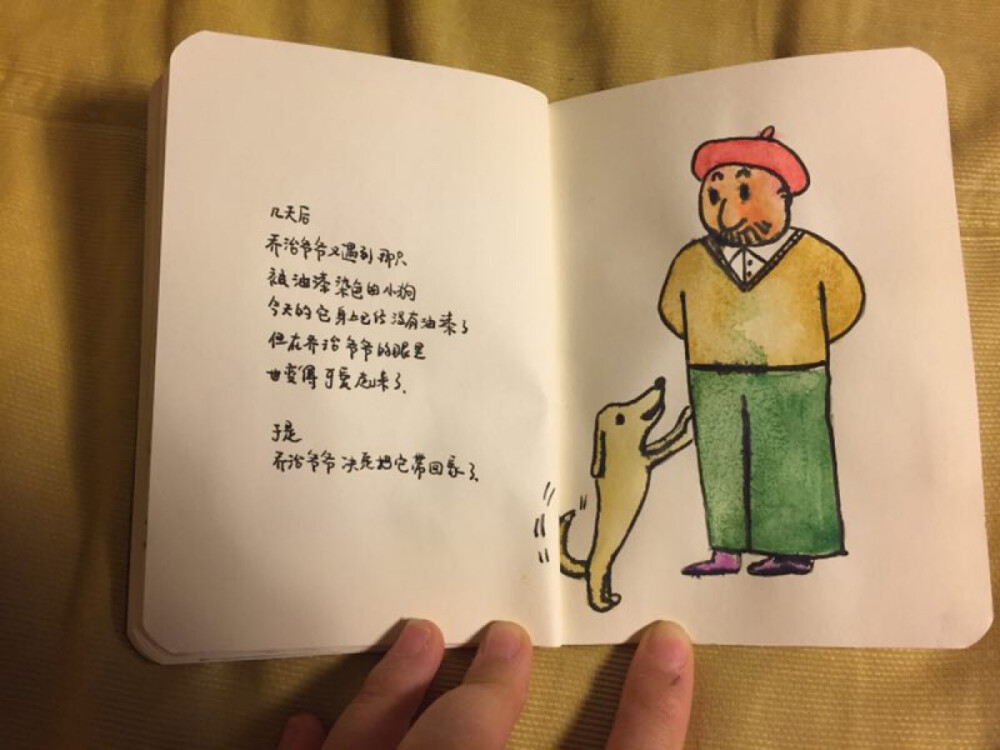 几天后
乔治爷爷又遇到那只
被油漆染色的小狗
今天的它身上已经没有油漆了
但在乔治爷爷的眼里
也变得可爱起来了.
于是
乔治爷爷决定把它带回家了.